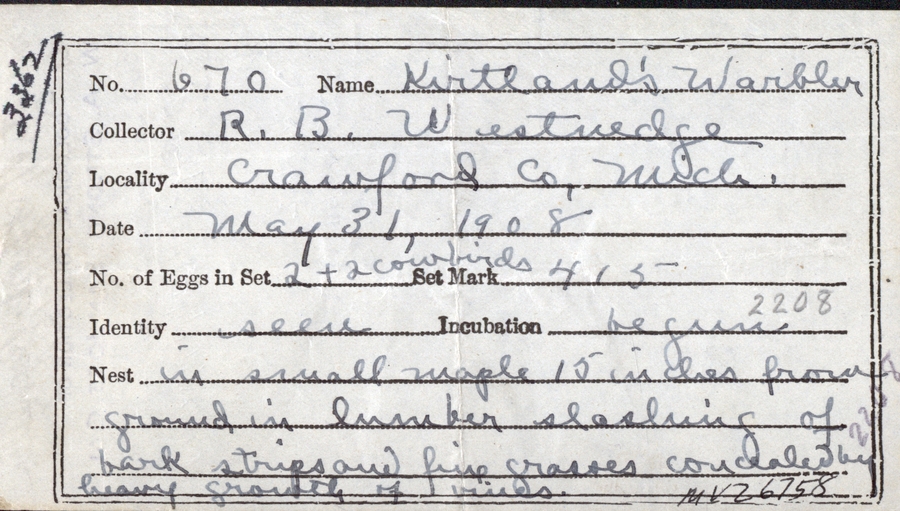 3362
No. 670 Name Kirtland's Warbler
Collector R. B. Westnedge
Locality Crawford Co, Mich.
Date May 31, 1908
No. of Eggs in Set 2 + 2 cowbirds Set Mark 4/5
2208
Identity seen Incubation begun
Nest in small maple 15 inches from
ground in lumber slashing of
bark strips and fine grasses concealed by
heavy growth of vinds.
MVZ6758